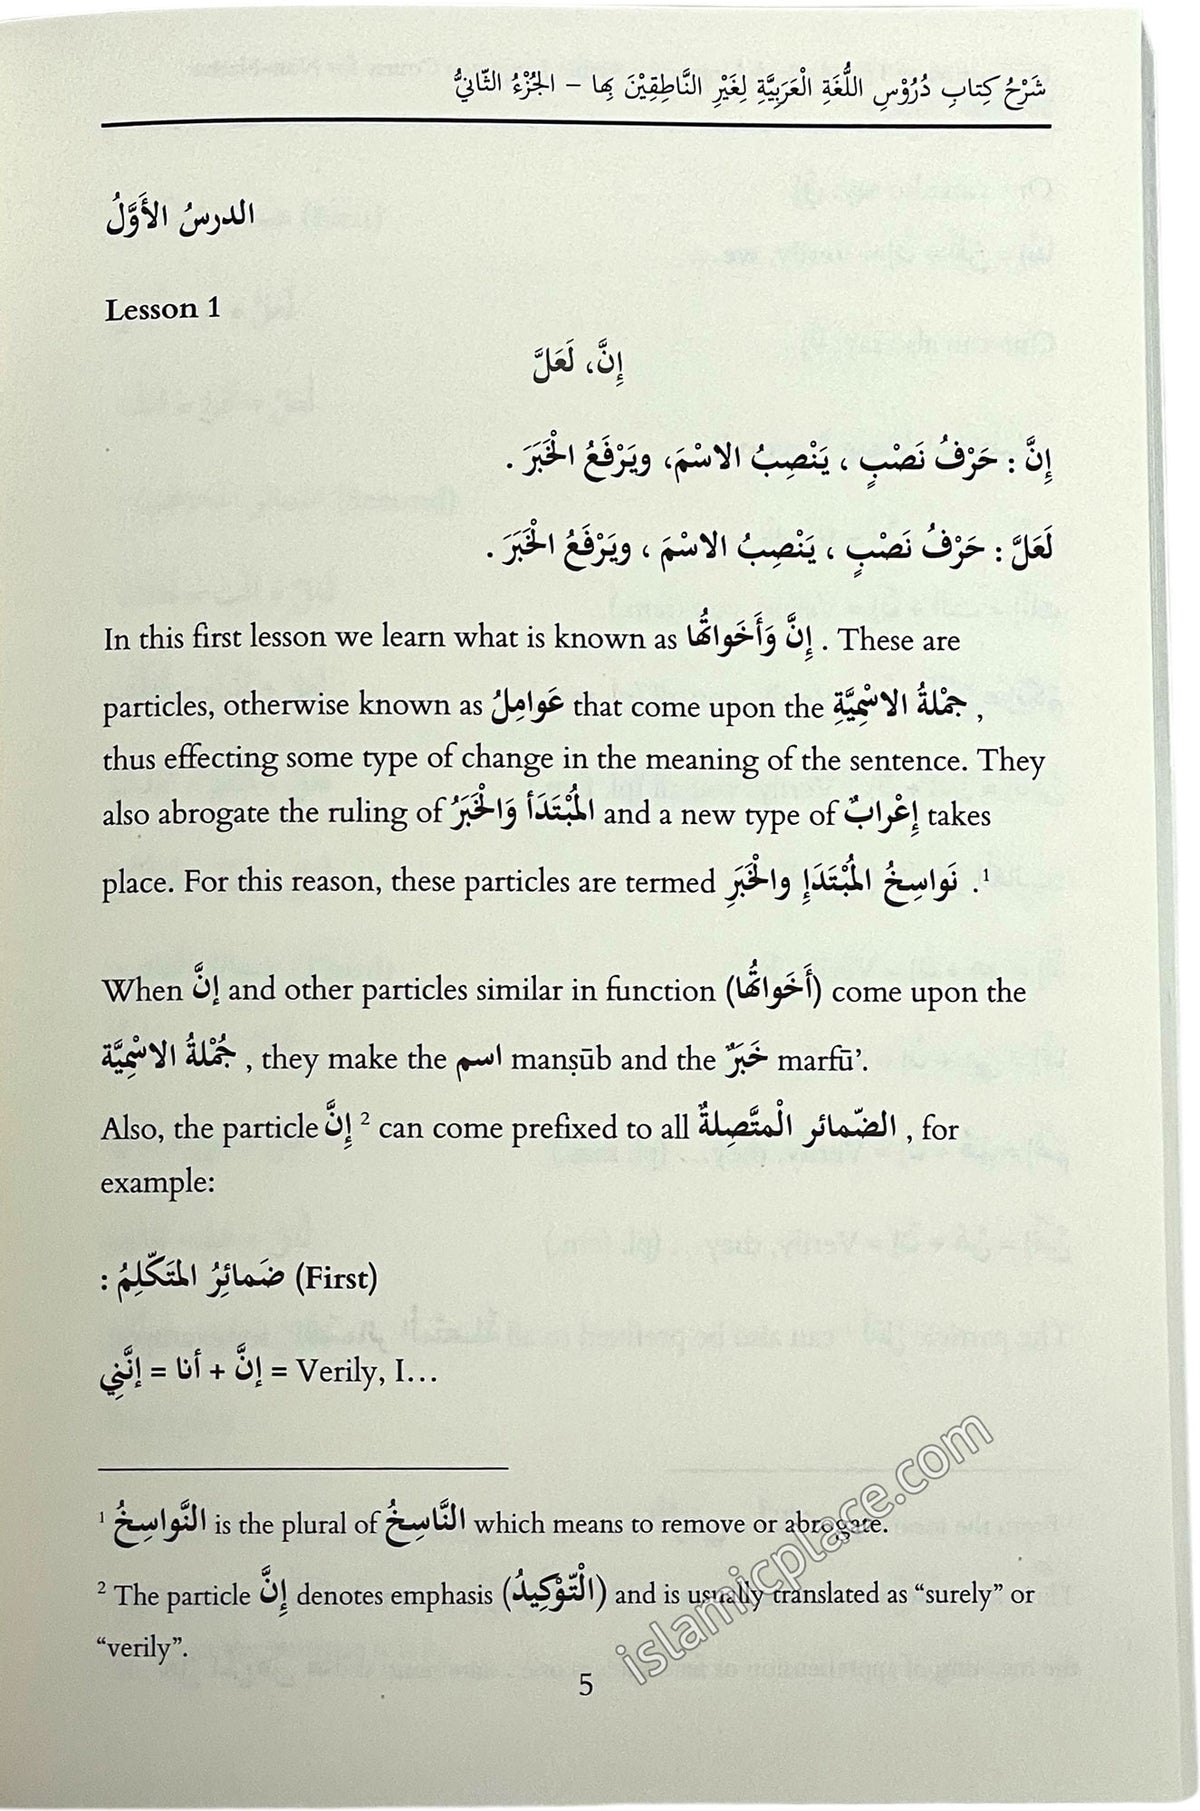 شَرْحُ كِتابِ دُرُوْسِ اللُّغَةِ الْعَرَبِيَّةِ لِغَيْرِ النَّاطِقِيْنَ بِها – الجُزْءُ الثّانيُّ
الدرسُ الأَوَّلُ
Lesson 1
إِنَّ، لَعَلَّ
إِنَّ : حَرْفُ نَصْبٍ ، يَنْصِبُ الاسْمَ، ويَرْفَعُ الْخَبَرَ .
لَعَلَّ : حَرْفُ نَصْبٍ ، يَنْصِبُ الاسْمَ ، ويَرْفَعُ الْخَبَرَ .
In this first lesson we learn what is known as إِنَّ وَأَخَواتُها . These are
particles, otherwise known as عَوامِلُ that come upon the جُمْلةُ الاسْمِيَّةِ ,
thus effecting some type of change in the meaning of the sentence. They
also abrogate the ruling of المُبْتَدَأ وَالْخَبَرُ and a new type of إِعْرابٌ takes
place. For this reason, these particles are termed نَواسِخُ المُبْتَدَإِ والْخَبَرِ .¹
When إِنَّ and other particles similar in function (أَخَواتُها) come upon the
جُمْلةُ الاسْمِيَّة , they make the اسم manṣūb and the خَبَرٌ marfū’.
Also, the particle إِنَّ ² can come prefixed to all الضّمائر الْمتَّصِلةُ , for
example:
ضَمائِرُ المتَكّلِمُ (First) :
إنَّ + أنا = إنَّنِي = Verily, I…
¹ النَّواسِخُ is the plural of النَّاسِخُ which means to remove or abrogate.
² The particle إِنَّ denotes emphasis (الْتّوْكِيدُ) and is usually translated as “surely” or
“verily”.
5
islamicplace.com